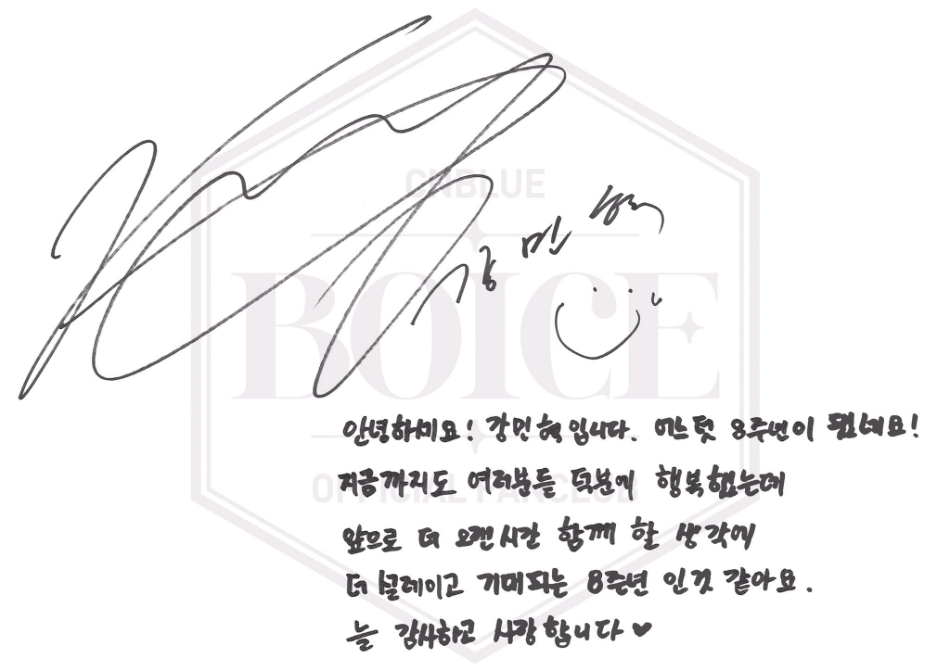 CNBLUE
강민혁
BOICE
OFFICIAL FANCLUB
안녕하세요! 강민혁입니다. 어느덧 8주년이 됐네요!
지금까지도 여러분들 덕분에 행복했는데
앞으로 더 오랜시간 함께 할 생각에
더 설레이고 기대되는 8주년 인것 같아요.
늘 감사하고 사랑합니다 ♥